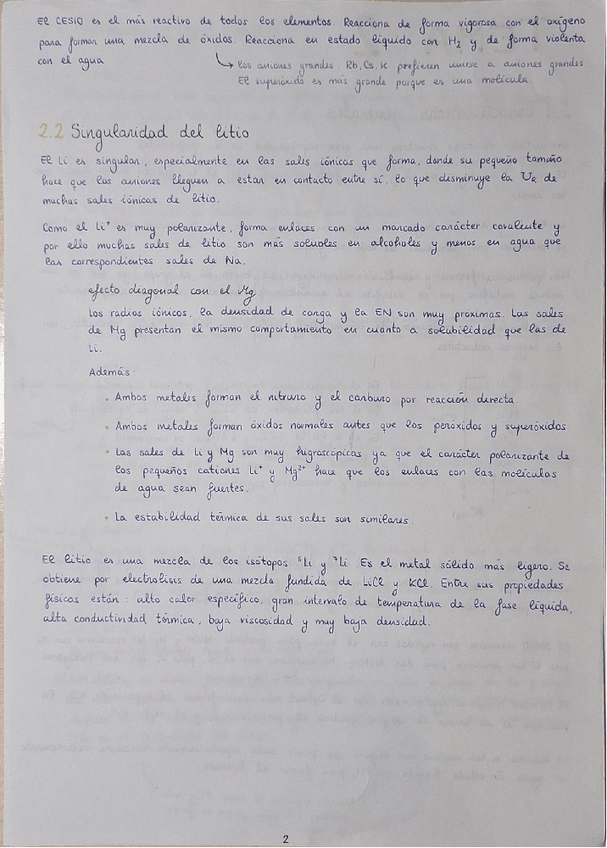 El CESIO es el más reactivo de todos los elementos. Reacciona de forma vigorosa con el oxígeno
para formar una mezcla de óxidos. Reacciona en estado líquido con H₂ y de forma violenta
con el agua
↳ los aniones grandes: Rb, Cs, K prefieren unirse a aniones grandes.
El superóxido es más grande porque es una molécula.
2.2 Singularidad del litio
El Li es singular, especialmente en las sales iónicas que forma, donde su pequeño tamaño
hace que los aniones lleguen a estar en contacto entre sí, lo que disminuye la UR de
muchas sales iónicas de litio.
Como el Li⁺ es muy polarizante, forma enlaces con un marcado carácter covalente y
por ello muchas sales de litio son más solubles en alcoholes y menos en agua que
las correspondientes sales de Na.
efecto diagonal con el Mg
Los radios iónicos, la densidad de carga y la EN son muy próximas. Las sales
de Mg presentan el mismo comportamiento en cuanto a solubilidad que las de
Li.
Además:
• Ambos metales forman el nitruro y el carburo por reacción directa.
• Ambos metales forman óxidos normales antes que los peróxidos y superóxidos
• Las sales de Li y Mg son muy higroscópicas ya que el carácter polarizante de
los pequeños cationes Li⁺ y Mg²⁺ hace que los enlaces con las moléculas
de agua sean fuertes.
• La estabilidad térmica de sus sales son similares.
El litio es una mezcla de los isótopos ⁶Li y ⁷Li. Es el metal sólido más ligero. Se
obtiene por electrolisis de una mezcla fundida de LiCl y KCl. Entre sus propiedades
físicas están: alto calor específico, gran intervalo de temperatura de la fase líquida,
alta conductividad térmica, baja viscosidad y muy baja densidad.
2